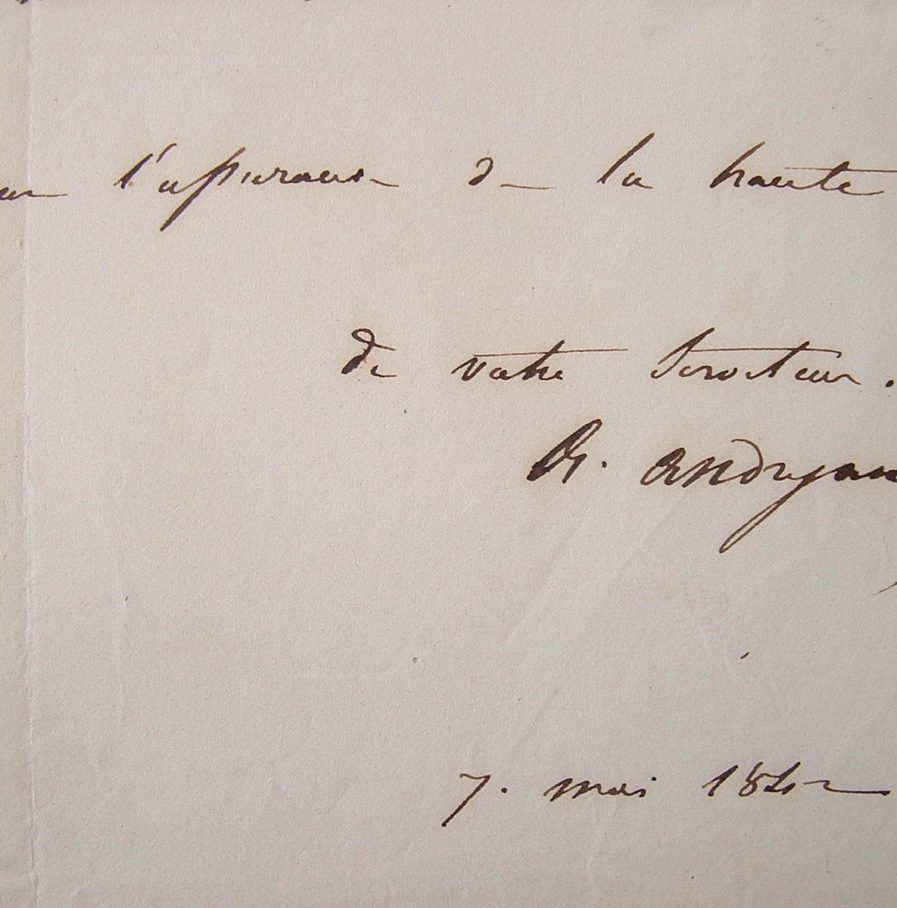 l'assurance de la haute
de votre serviteur.
A. Andryan
7. mai 1842